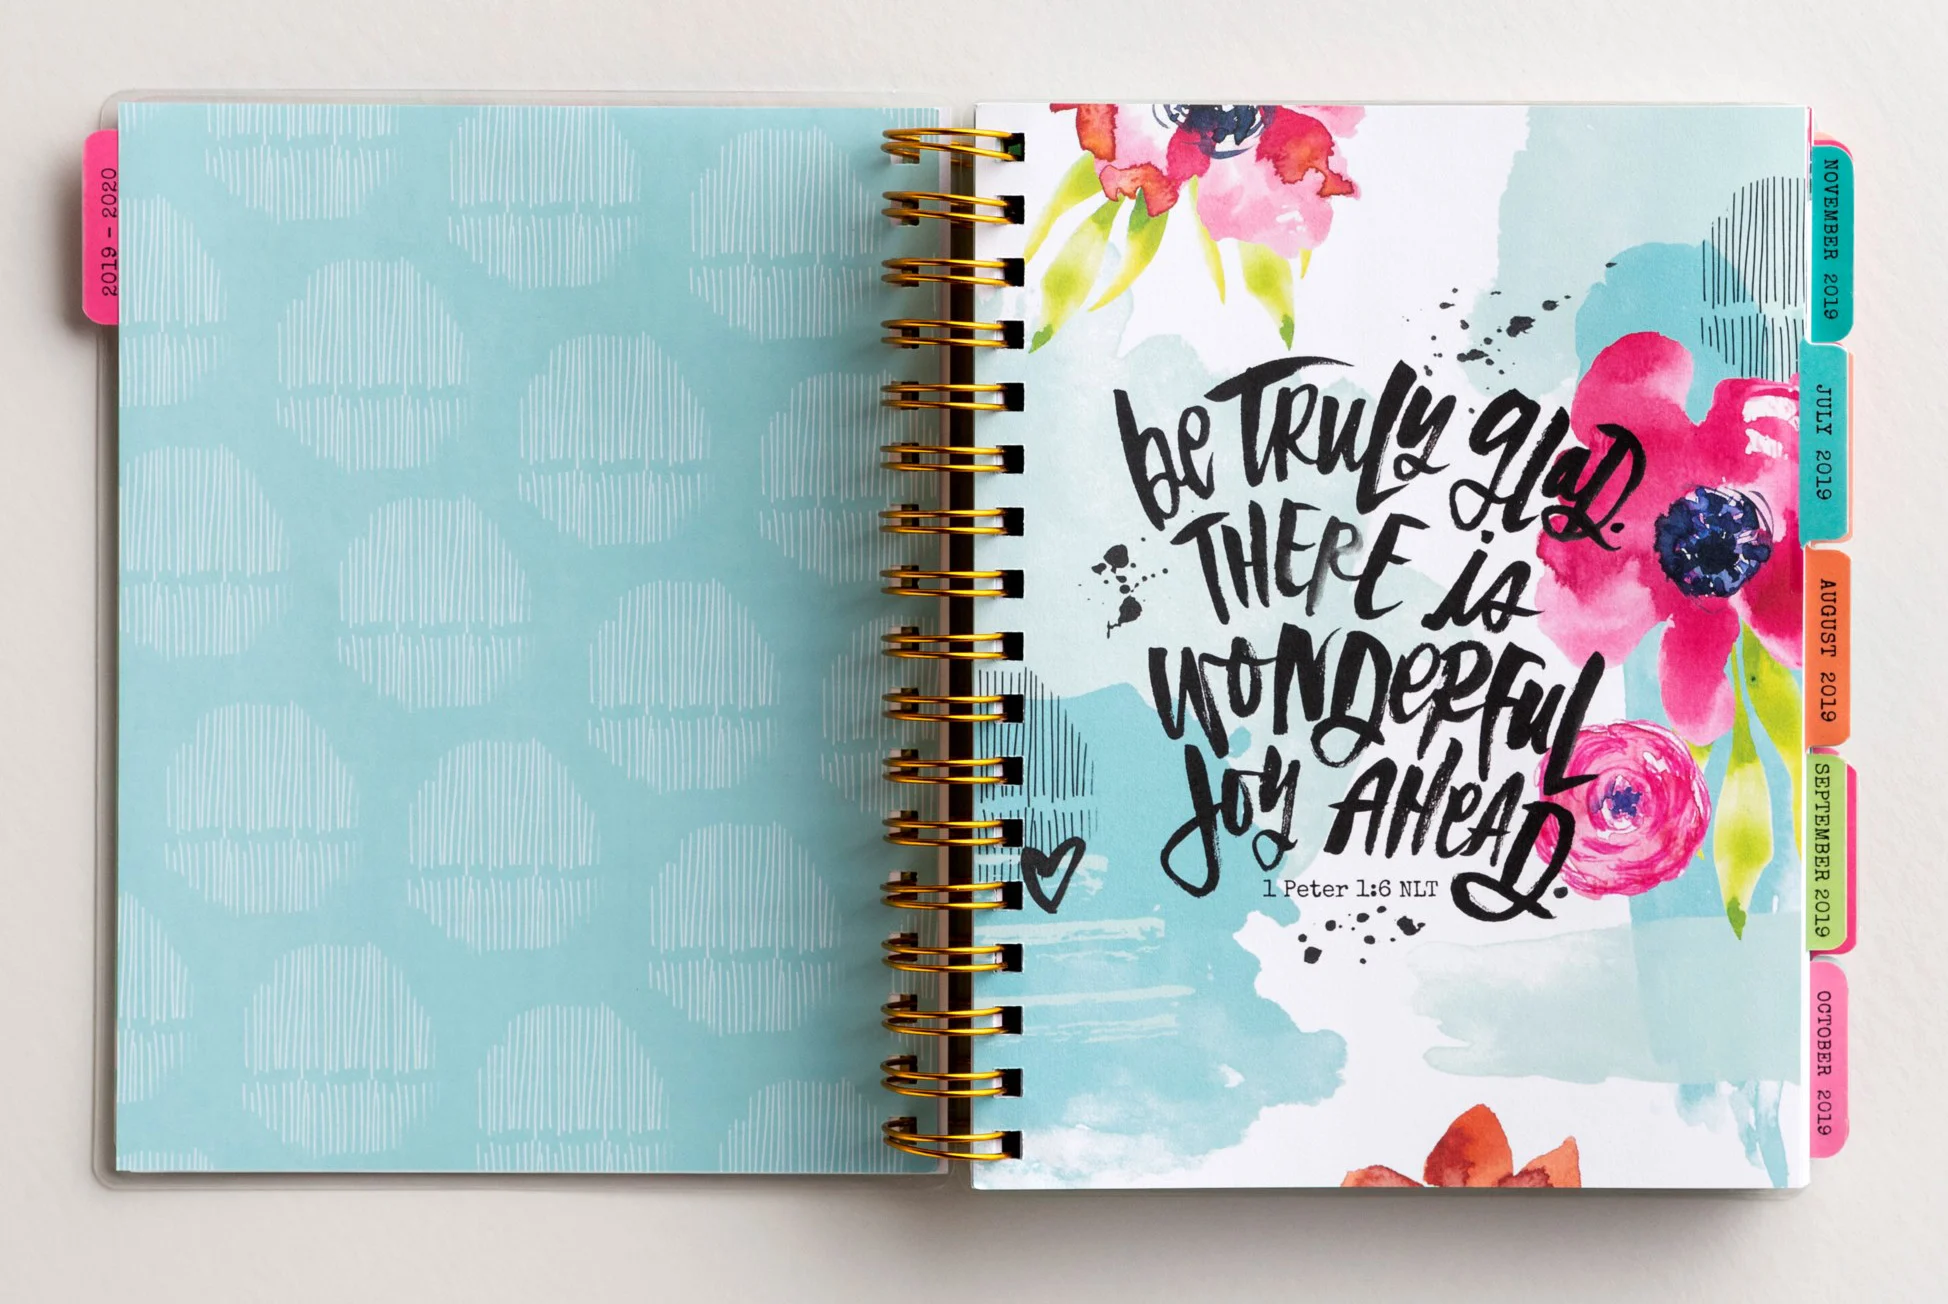 2019 - 2020
be TRuLy glaD.
THERE is
WONDeRFul
JOY AHeAD.
1 Peter 1:6 NLT
NOVEMBER 2019
JULY 2019
AUGUST 2019
SEPTEMBER 2019
OCTOBER 2019